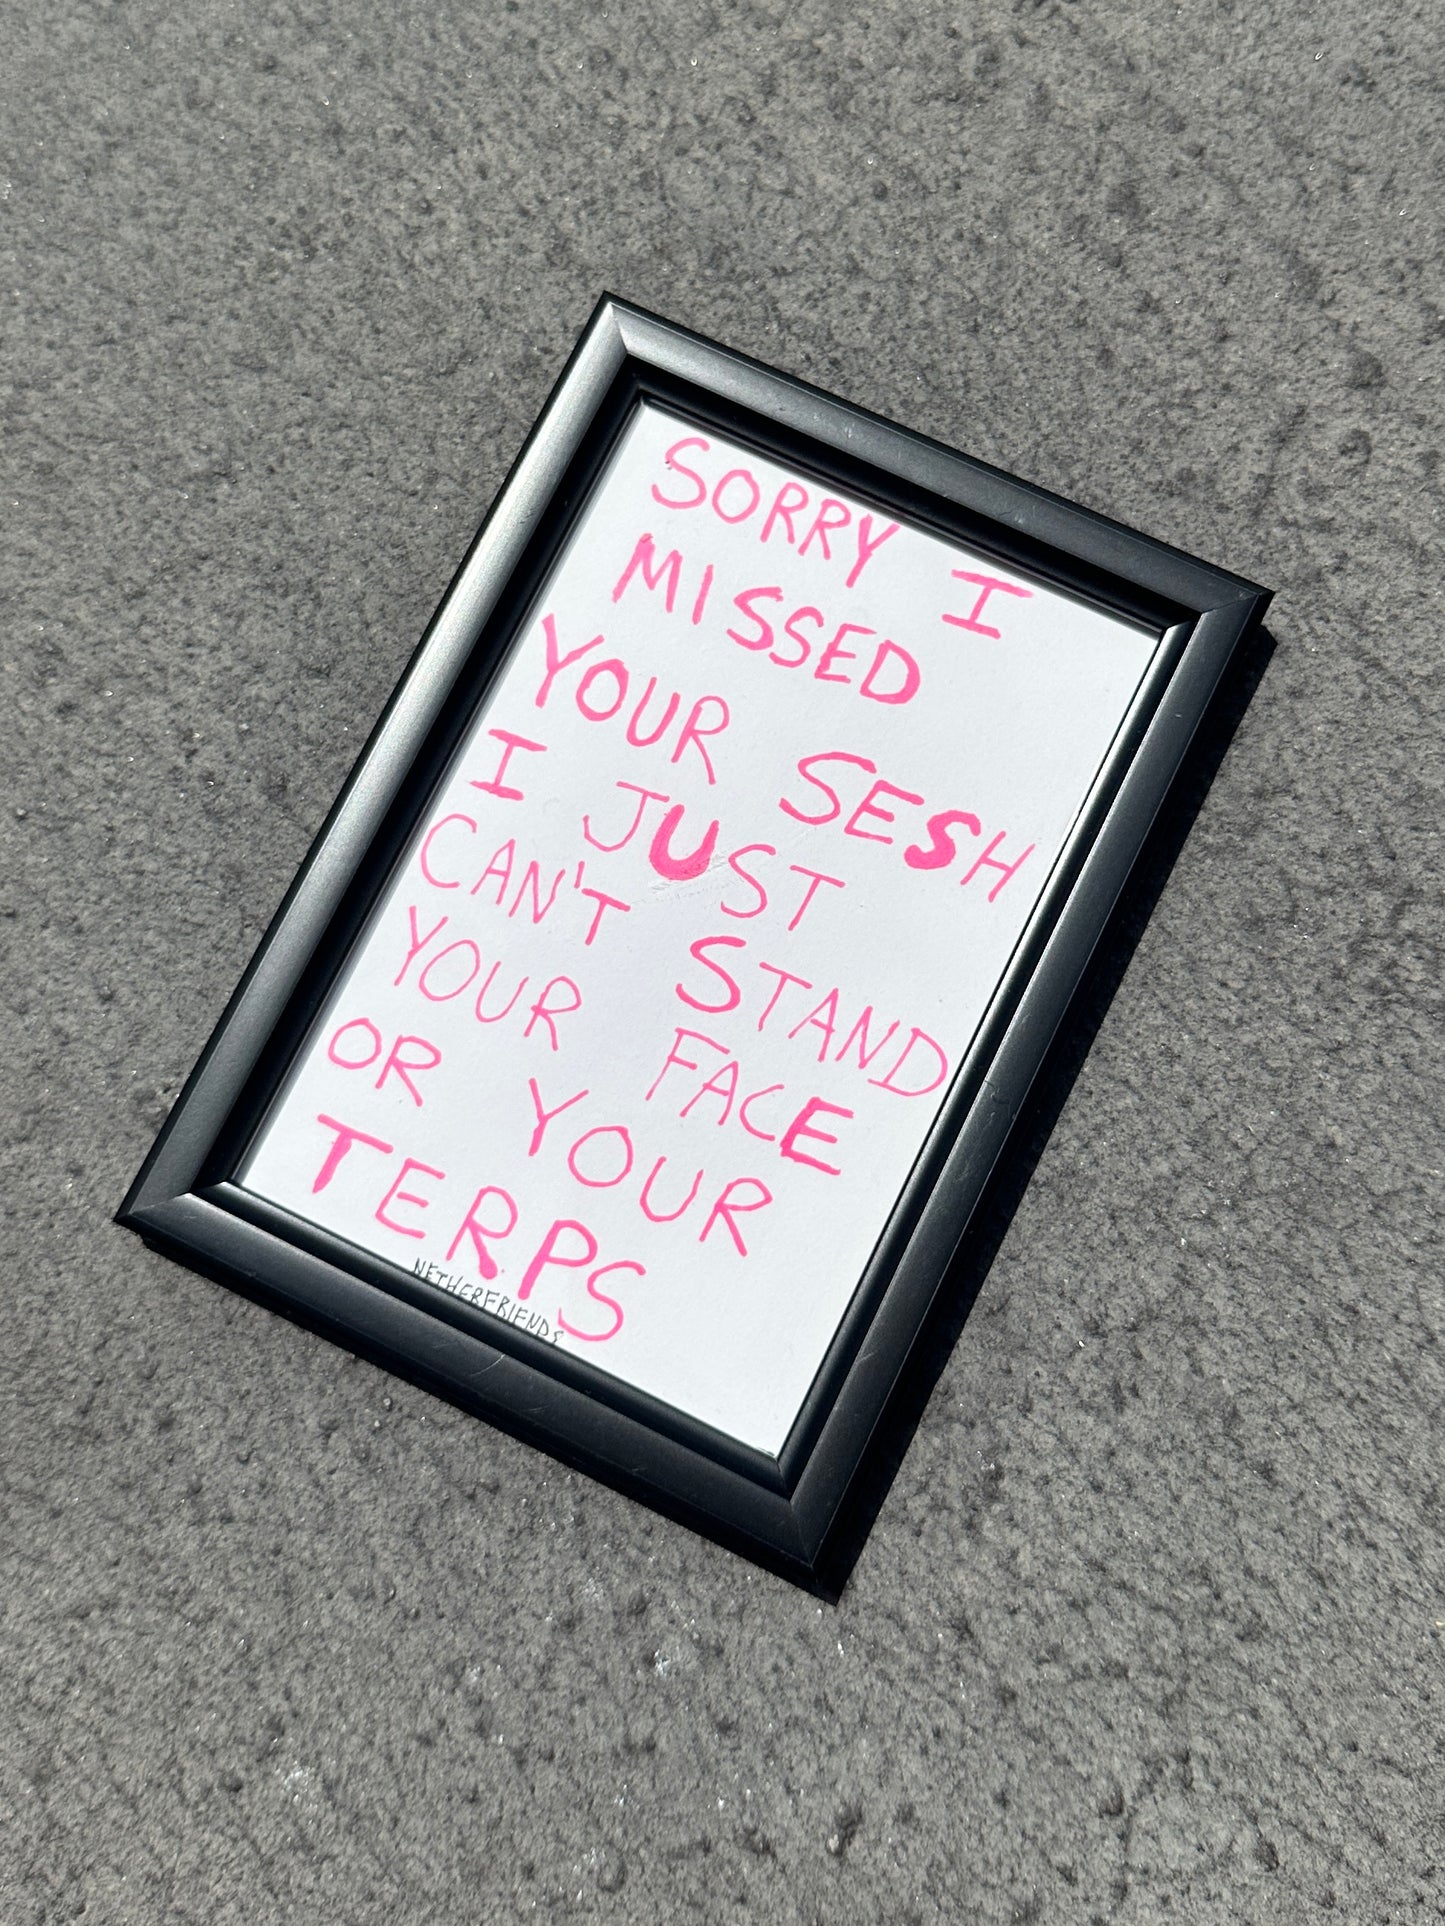 SORRY I
MISSED
YOUR SESH
I JUST
CAN'T STAND
YOUR FACE
OR YOUR
TERPS
NETHERFRIENDS